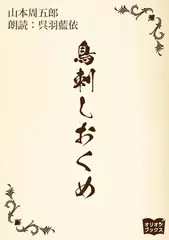 山本周五郎
朗読:呉羽藍依
鳥刺しおくめ
オリオン
ブックス